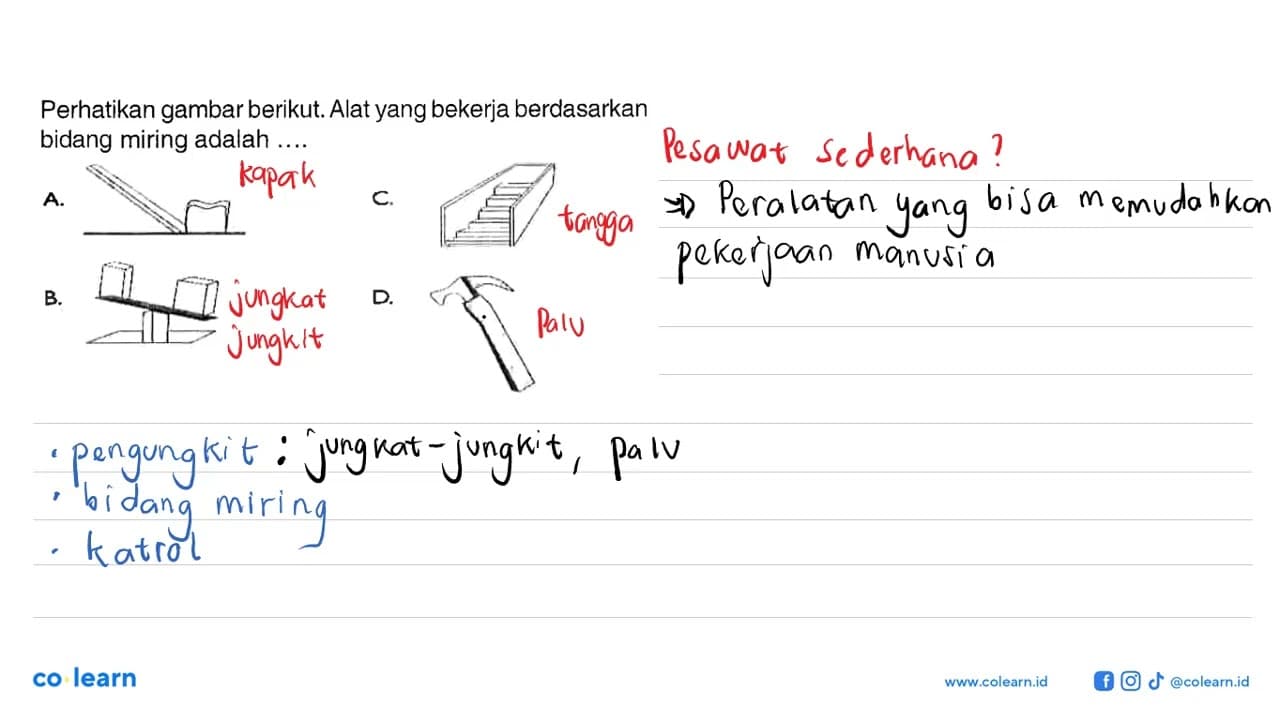 Perhatikan gambar berikut. Alat yang bekerja berdasarkan
bidang miring adalah ....
A.
kapak
B.
jungkat
jungkit
C.
tangga
D.
Palu
Pesawat sederhana?
⇒ Peralatan yang bisa memudahkan
pekerjaan manusia
• pengungkit : jungkat-jungkit, palu
• bidang miring
• katrol
co learn
www.colearn.id
@colearn.id